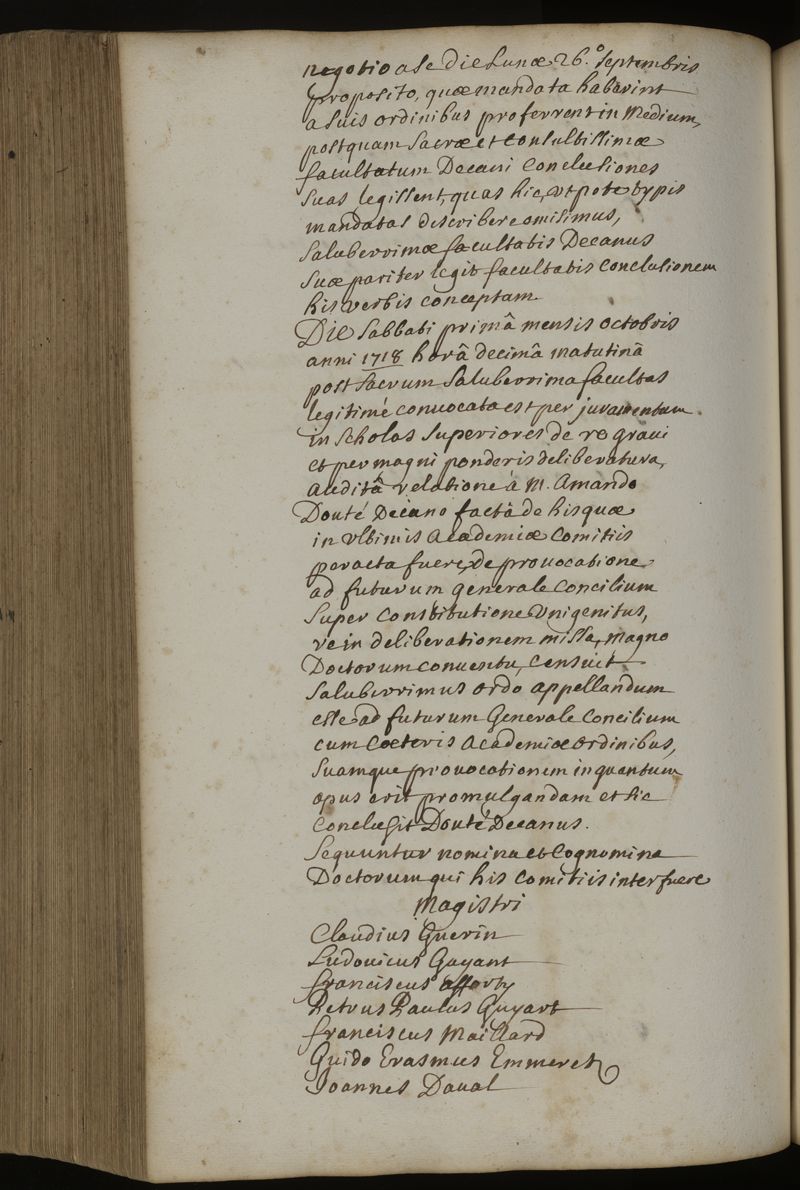 negotio a se die Lunæ 26.º septembris
proposito, quæ mandata haberint
a suis ordinibus proferrent in Medium,
postquam Sacræ et Consultissimæ
facultatum Decani Conclusiones
suas legissent, quas hic, utpote typis
mandatas describere omisimus,
saluberrimæ facultatis Decanus
suæ pariter legit facultatis Conclusionem
his verbis conceptam.
Die Sabbati primâ mensis octobris
anni 1718 horâ decimâ matutinâ
post sacrum saluberrima facultas
legitimè convocata est per juramentum
in scholas superiores de re graui
et permagni ponderis deliberatura,
audità relatione à M. Amando
Douté Decano factâ de his quæ
in ultimis Academiæ Comitiis
peracta fuere, de prouocatione
ad futurum generale Concilium
super Constitutione Unigenitus,
re in deliberationem missa, magno
Doctorum conuentu, Censuit
saluberrimus ordo appellandum
esse ad futurum Generale Concilium
cum Cæteris Academiæ ordinibus,
suamque prouocationem in quantum
opus erit promulgandam et sic
Conclusit Douté Decanus.
Sequuntur nomina et Cognomina
Doctorum qui his Comitiis interfuere
Magistri
Claudius Guerin
Ludouicus Gayant
franciscus afforty
Petrus Paulus Guyart
franciscus Maillard
Guido Erasmus Emmerez
Joannes Daual